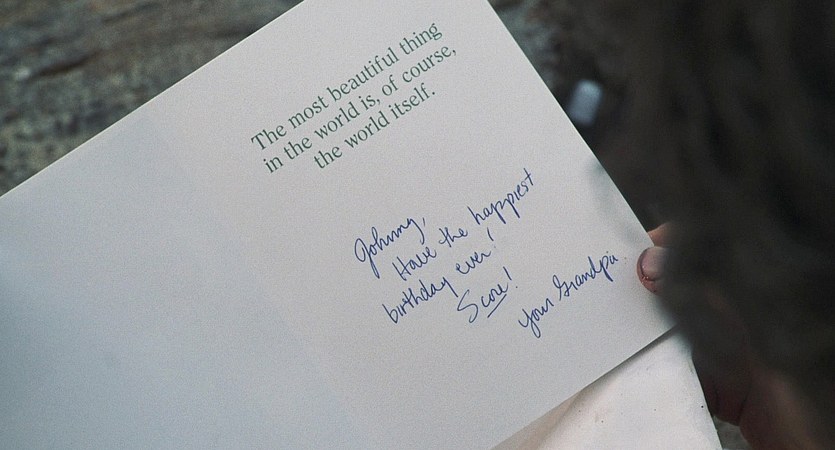 The most beautiful thing
in the world is, of course,
the world itself.
Johnny,
Have the happiest
birthday ever!
Score!
Your Grandpa.